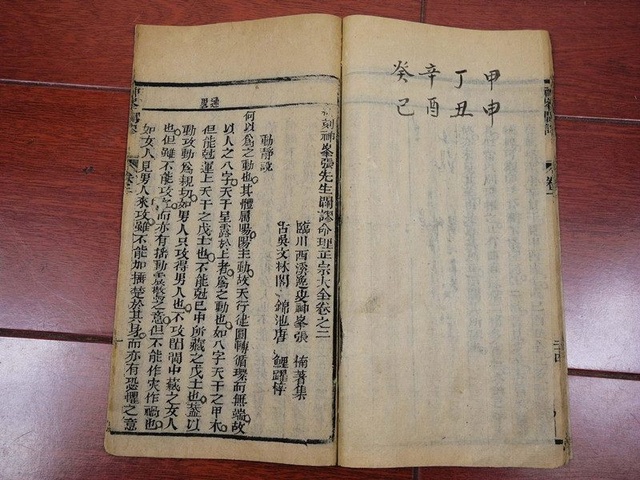 甲申
丁丑
辛酉
癸巳
刻神峯張先生闢謬命理正宗大全卷之二
臨川西溪逸叟神峯張 楠著集
古吳文林閣 錦池唐 鯉躍梓
動靜說
何以爲之動也其體屬陽陽主動故天行健圓轉循環而無端故
以人之八字天干呈露於上者爲之動也如八字天干之甲木
但能尅運上天干之戊土也不能尅巳中所藏之戊土也蓋以
動攻動爲親切如男人只攻得男人也不攻閨閫中藏之女人
也但雖不能攻之而亦有搖動震驚之意但不能作災作禍也
如女人見男人來攻雖不能加捶楚於其身而亦有恐懼之意